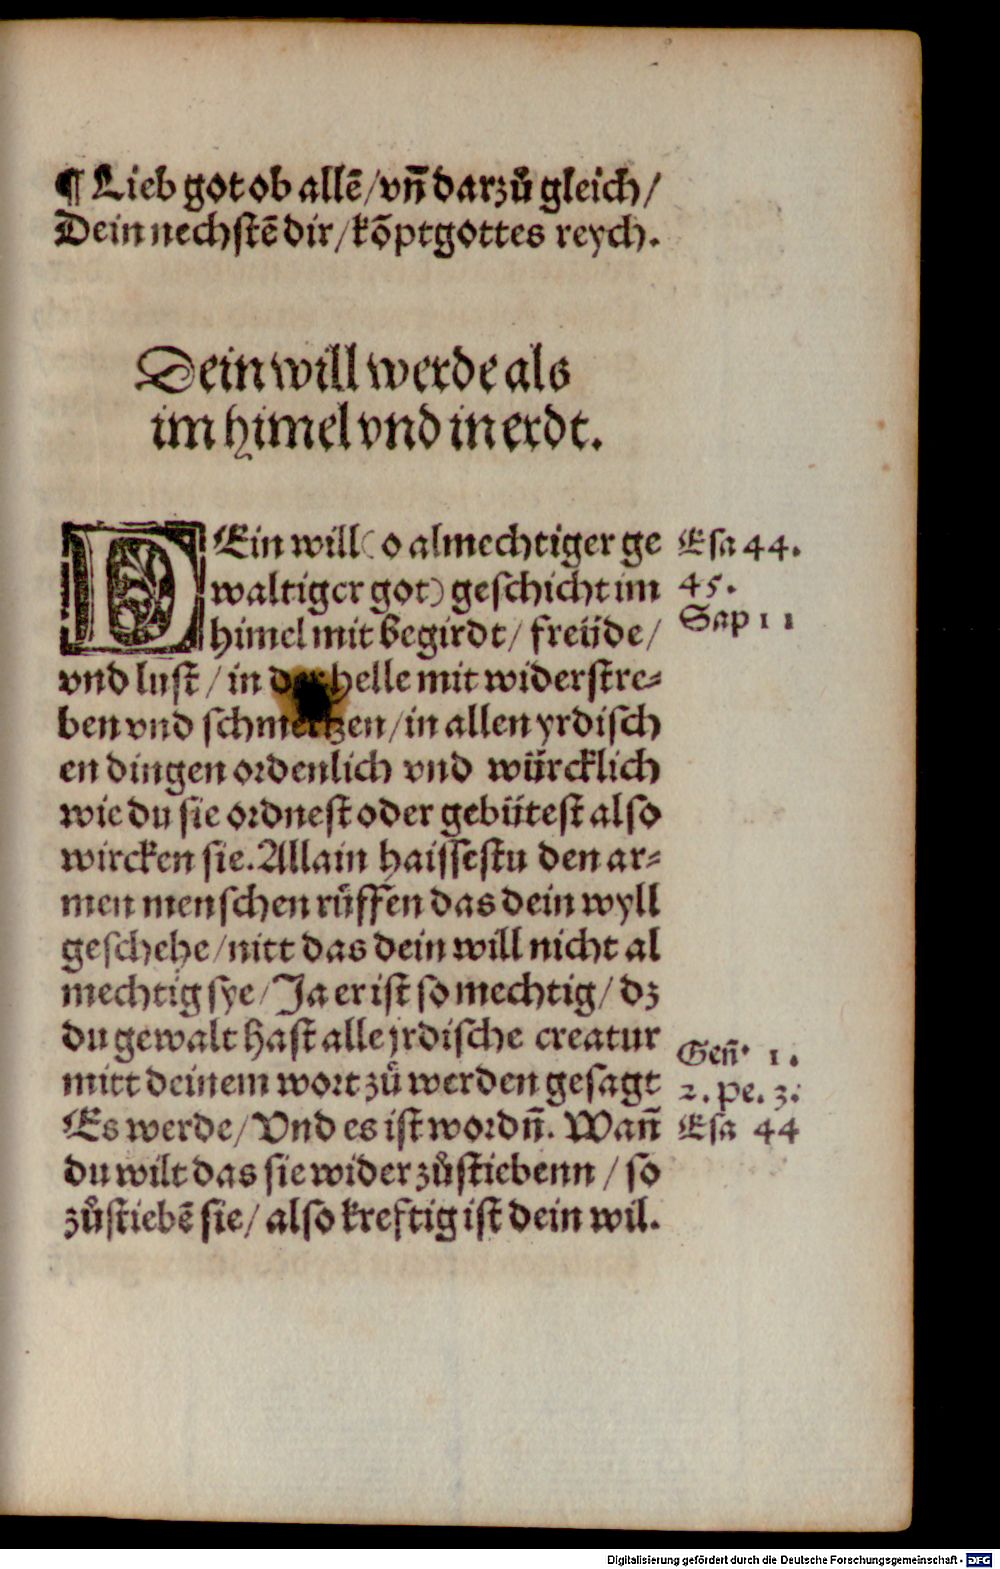 ¶ Lieb got ob allē/vn̄ darzů gleich/
Dein nechstē dir/kōpt gottes reych.
Dein will werde als
im himel vnd in erdt.
DEin will (o almechtiger ge
waltiger got) geschicht im
himel mit begirdt/ freüde/
vnd lust/in der helle mit widerstre-
ben vnd schmertzen/in allen yrdisch
en dingen ordenlich vnd würcklich
wie du sie ordnest oder gebütest also
wircken sie. Allain haissestu den ar-
men menschen rüffen das dein wyll
geschehe/nitt das dein will nicht al
mechtig sye/Ja er ist so mechtig/ dz
du gewalt hast alle jrdische creatur
mitt deinem wort zů werden gesagt
Es werde/Vnd es ist wordn̄. Wan̄
du wilt das sie wider zůstiebenn/so
zůstiebē sie/also kreftig ist dein wil.
Esa 44.
45.
Sap 11
Gen̄. 1.
2. pe. 3.
Esa 44
Digitalisierung gefördert durch die Deutsche Forschungsgemeinschaft - DFG